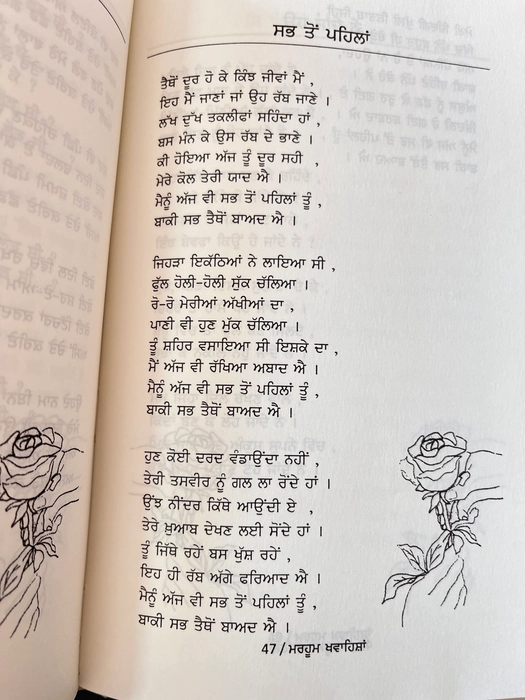 ਸਭ ਤੋਂ ਪਹਿਲਾਂ
ਤੈਥੋਂ ਦੂਰ ਹੋ ਕੇ ਕਿੰਝ ਜੀਵਾਂ ਮੈਂ ,
ਇਹ ਮੈਂ ਜਾਣਾਂ ਜਾਂ ਉਹ ਰੱਬ ਜਾਣੇ ।
ਲੱਖ ਦੁੱਖ ਤਕਲੀਫਾਂ ਸਹਿੰਦਾ ਹਾਂ ,
ਬਸ ਮੰਨ ਕੇ ਉਸ ਰੱਬ ਦੇ ਭਾਣੇ ।
ਕੀ ਹੋਇਆ ਅੱਜ ਤੂੰ ਦੂਰ ਸਹੀ ,
ਮੇਰੇ ਕੋਲ ਤੇਰੀ ਯਾਦ ਐ ।
ਮੈਨੂੰ ਅੱਜ ਵੀ ਸਭ ਤੋਂ ਪਹਿਲਾਂ ਤੂੰ ,
ਬਾਕੀ ਸਭ ਤੈਥੋਂ ਬਾਅਦ ਐ ।
ਜਿਹੜਾ ਇਕੱਠਿਆਂ ਨੇ ਲਾਇਆ ਸੀ ,
ਫੁੱਲ ਹੋਲੀ-ਹੋਲੀ ਸੁੱਕ ਚੱਲਿਆ ।
ਰੋ-ਰੋ ਮੇਰੀਆਂ ਅੱਖੀਆਂ ਦਾ ,
ਪਾਣੀ ਵੀ ਹੁਣ ਮੁੱਕ ਚੱਲਿਆ ।
ਤੂੰ ਸ਼ਹਿਰ ਵਸਾਇਆ ਸੀ ਇਸ਼ਕੇ ਦਾ ,
ਮੈਂ ਅੱਜ ਵੀ ਰੱਖਿਆ ਅਬਾਦ ਐ ।
ਮੈਨੂੰ ਅੱਜ ਵੀ ਸਭ ਤੋਂ ਪਹਿਲਾਂ ਤੂੰ ,
ਬਾਕੀ ਸਭ ਤੈਥੋਂ ਬਾਅਦ ਐ ।
ਹੁਣ ਕੋਈ ਦਰਦ ਵੰਡਾਉਂਦਾ ਨਹੀਂ ,
ਤੇਰੀ ਤਸਵੀਰ ਨੂੰ ਗਲ ਲਾ ਰੋਂਦੇ ਹਾਂ ।
ਉਂਝ ਨੀਂਦਰ ਕਿੱਥੇ ਆਉਂਦੀ ਏ ,
ਤੇਰੇ ਖ਼ੁਆਬ ਦੇਖਣ ਲਈ ਸੋਂਦੇ ਹਾਂ ।
ਤੂੰ ਜਿੱਥੇ ਰਹੇਂ ਬਸ ਖੁੱਸ਼ ਰਹੇਂ ,
ਇਹ ਹੀ ਰੱਬ ਅੱਗੇ ਫਰਿਆਦ ਐ ।
ਮੈਨੂੰ ਅੱਜ ਵੀ ਸਭ ਤੋਂ ਪਹਿਲਾਂ ਤੂੰ ,
ਬਾਕੀ ਸਭ ਤੈਥੋਂ ਬਾਅਦ ਐ ।
47 / ਮਰਹੂਮ ਖਵਾਹਿਸ਼ਾਂ